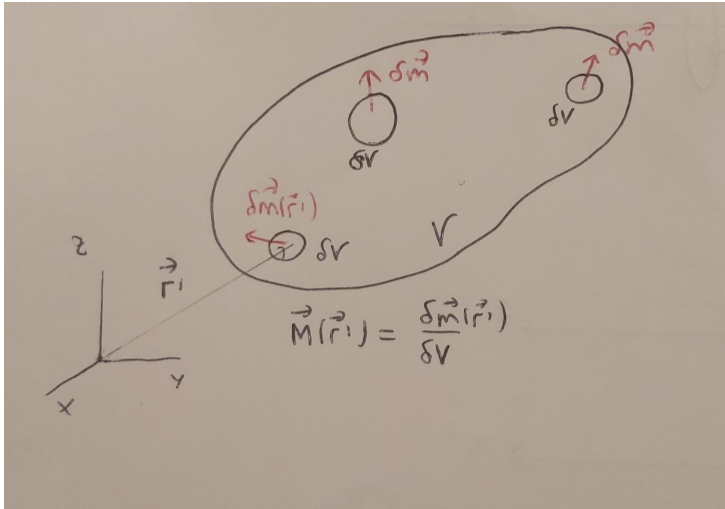 δm⃗
δm⃗
δV
δV
δm⃗(r⃗')
δV
V
z
r⃗'
M⃗(r⃗') = δm⃗(r⃗') / δV
y
x